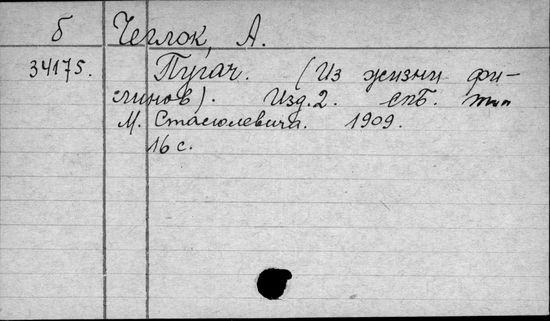 б Чеглок, А.
34175. Пугач. (Из жизни фи-
линов). Изд. 2. СПБ. тип
М. Стасюлевича. 1909.
16 с.